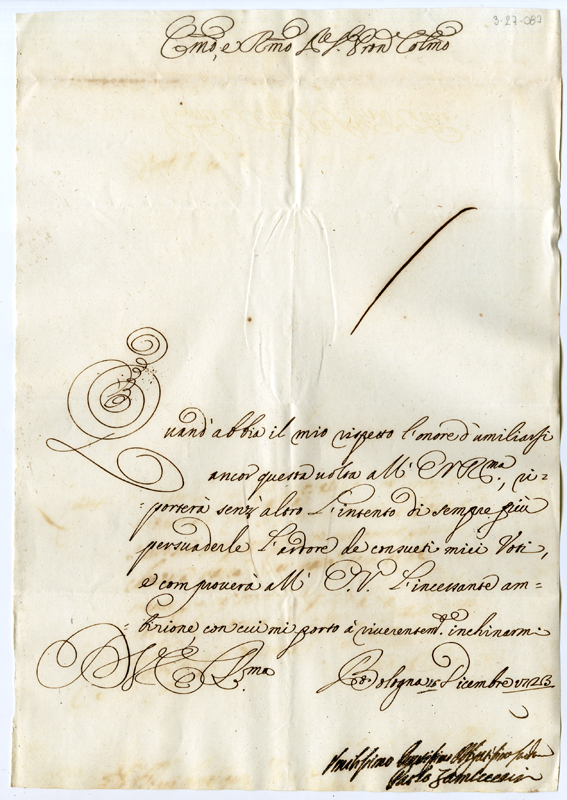 3-27-087
Emo, e Rmo Sre. Pron Colmo
Quand' abbia il mio rispetto l'onore d'umiliarsi
ancor questa volta all' E.V.Rma, ri=
=porterà senz' altro l'intento di sempre più
persuaderle l'ardore de consueti miei Voti,
e comproverà all' E.V. l'incessante am=
=bizione con cui mi porto à riverentemte. inchinarmi
Di V.E. Rma
Bologna 15 Dicembre 1723
Umilissimo
Paolo